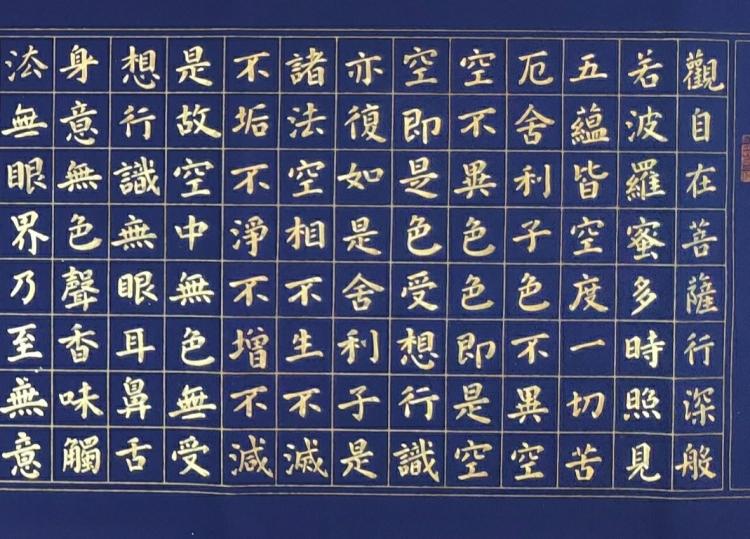 觀自在菩薩行深般
若波羅蜜多時照見
五蘊皆空度一切苦
厄舍利子色不異空
空不異色色即是空
空即是色受想行識
亦復如是舍利子是
諸法空相不生不滅
不垢不淨不增不減
是故空中無色無受
想行識無眼耳鼻舌
身意無色聲香味觸
法無眼界乃至無意